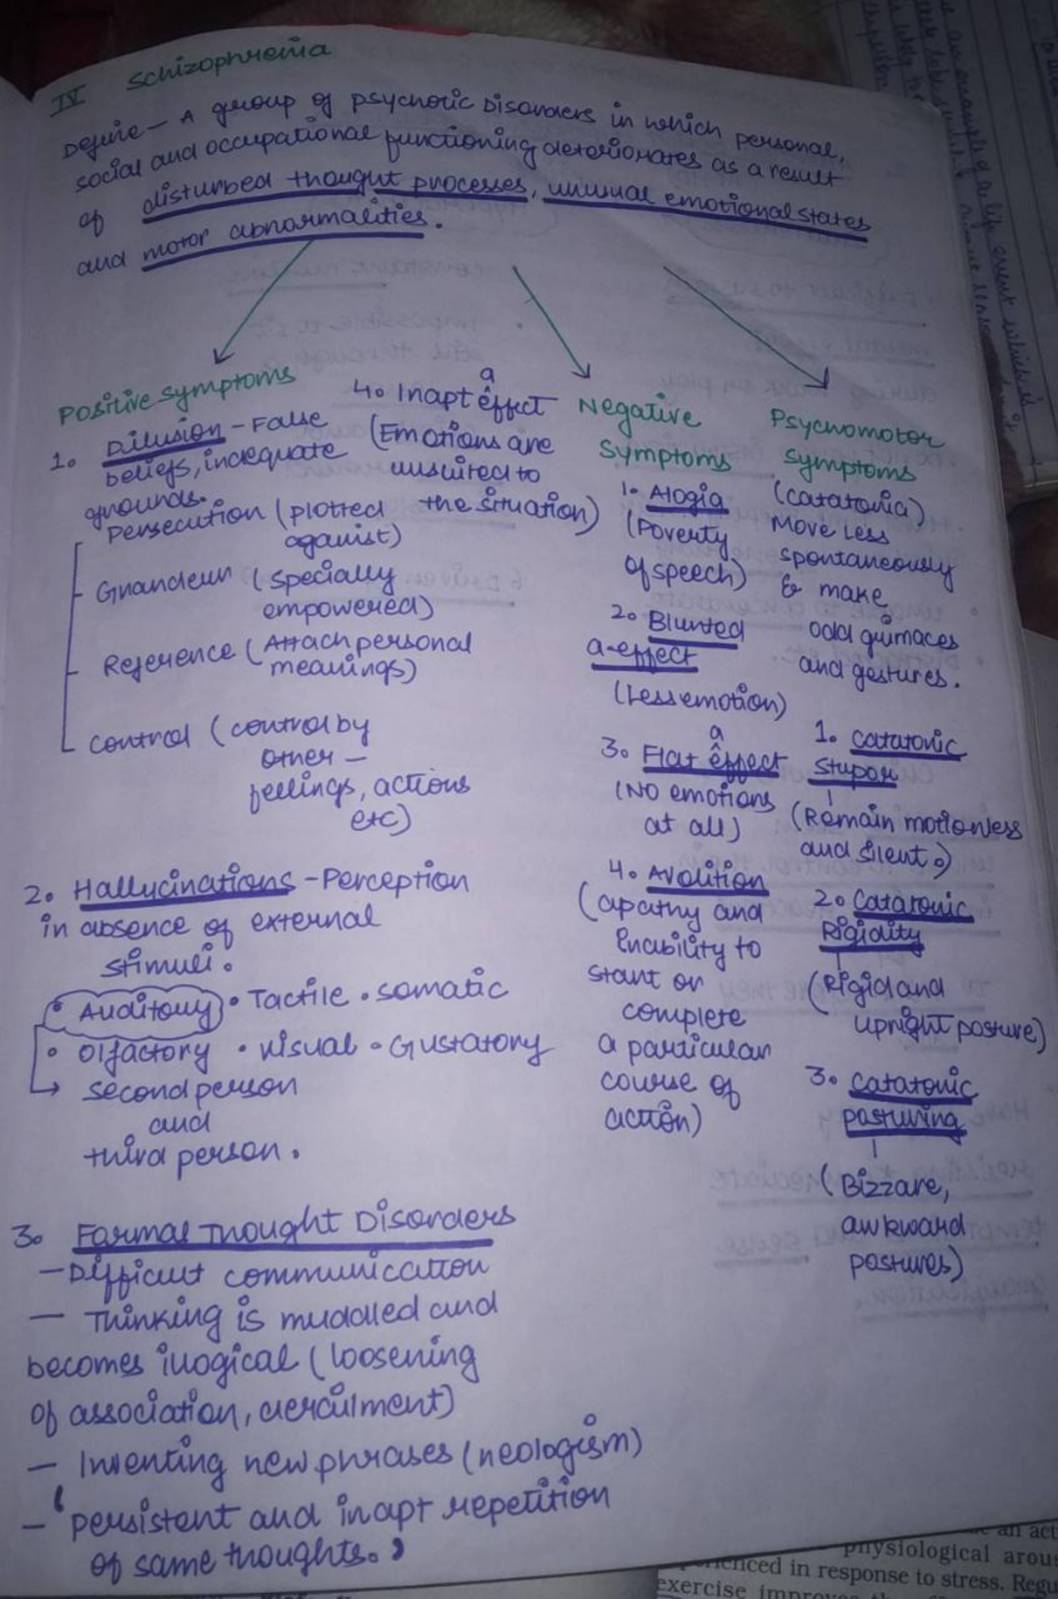 IV Schizophrenia
Define - A group of psychotic Disorders in which personal,
social and occupational functioning deteriorates as a result
of disturbed thought processes, unusual emotional states
and motor abnormalities.
Positive symptoms
1. Dilusion - False
beliefs, inadequate
grounds.
Persecution (plotted
against)
Grandeur (specially
empowered)
Reference (Attach personal
meanings)
control (control by
other -
feelings, actions
etc)
2. Hallucinations - Perception
in absence of external
stimuli.
• Auditory • Tactile • somatic
• olfactory • visual • Gustatory
second person
and
third person.
3. Formal Thought Disorders
- Difficult communication
- Thinking is muddled and
becomes illogical (loosening
of association, derailment)
- Inventing new phrases (neologism)
- persistent and inapt repetition
of same thoughts.
4. Inapt effect
a
(Emotions are
unsuited to
the situation)
Negative
symptoms
1. Alogia
(Poverty
of speech)
2. Blunted
a-effect
(Less emotion)
3. Flat effect
a
(No emotions
at all)
4. Avolition
(apathy and
Inability to
start or
complete
a particular
course of
action)
Psychomotor
symptoms
(catatonia)
Move Less
spontaneously
& make
odd grimaces
and gestures.
1. catatonic
stupor
(Remain motionless
and silent.)
2. catatonic
Rigidity
(Rigid and
upright posture)
3. catatonic
posturing
(Bizzare,
awkward
postures)
an act
physiological arou
enced in response to stress. Regu
exercise